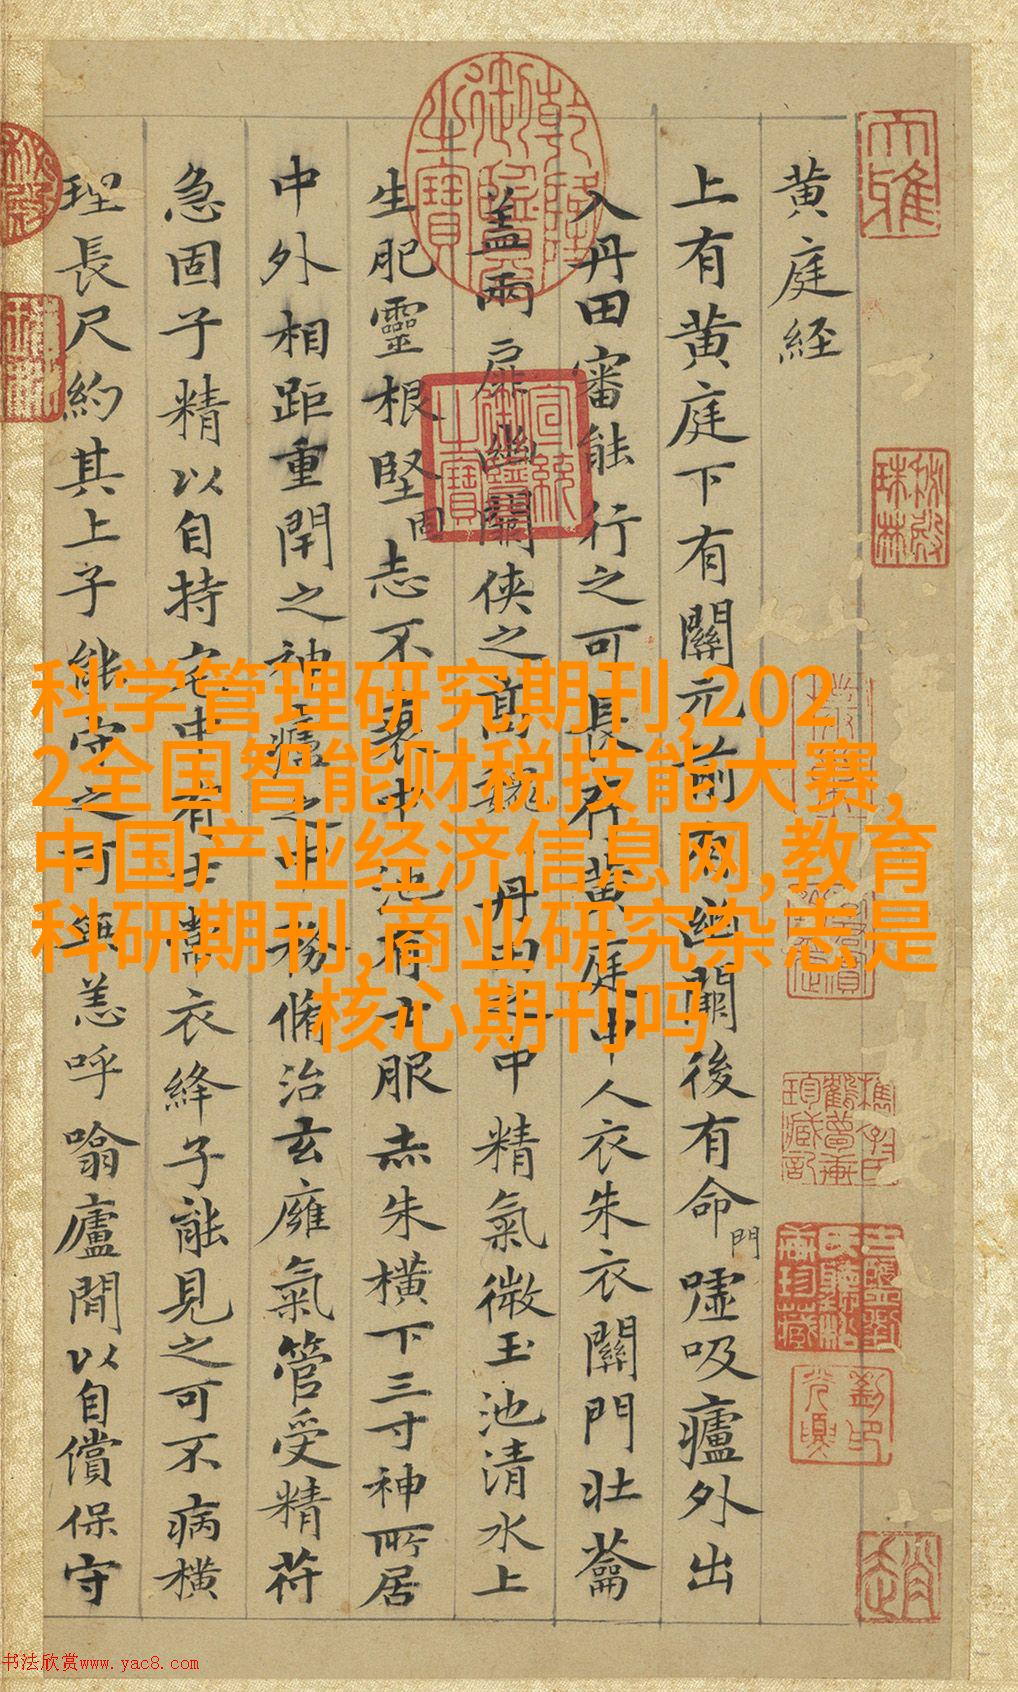 黄庭经
上有黄庭下有關元前有幽闕後有命門嘘吸廬外出
入丹田審能行之可長存黄庭中人衣朱衣關門壯蘥
盖兩扉幽關俠之髙巍巍丹田之中精氣微玉池清水上
生肥靈根堅固志不衰中池有士服赤朱横下三寸神所居
中外相距重閇之神廬之中務脩治玄癰氣管受精符
急固子精以自持宅中有士常衣絳子能見之可不病横
理長尺約其上子能守之可無恙呼噏廬間以自償保守
科学管理研究期刊,202
2全国智能财税技能大赛,
中国产业经济信息网,教育
科研期刊,商业研究杂志是
核心期刊吗
乾隆御覽之寳
宣統御覽之寳
书法欣赏www.yac8.com